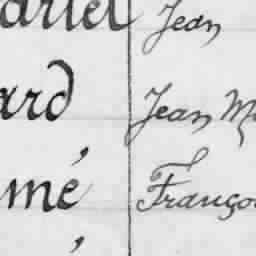 artel Jean
ard Jean M
mé Franço